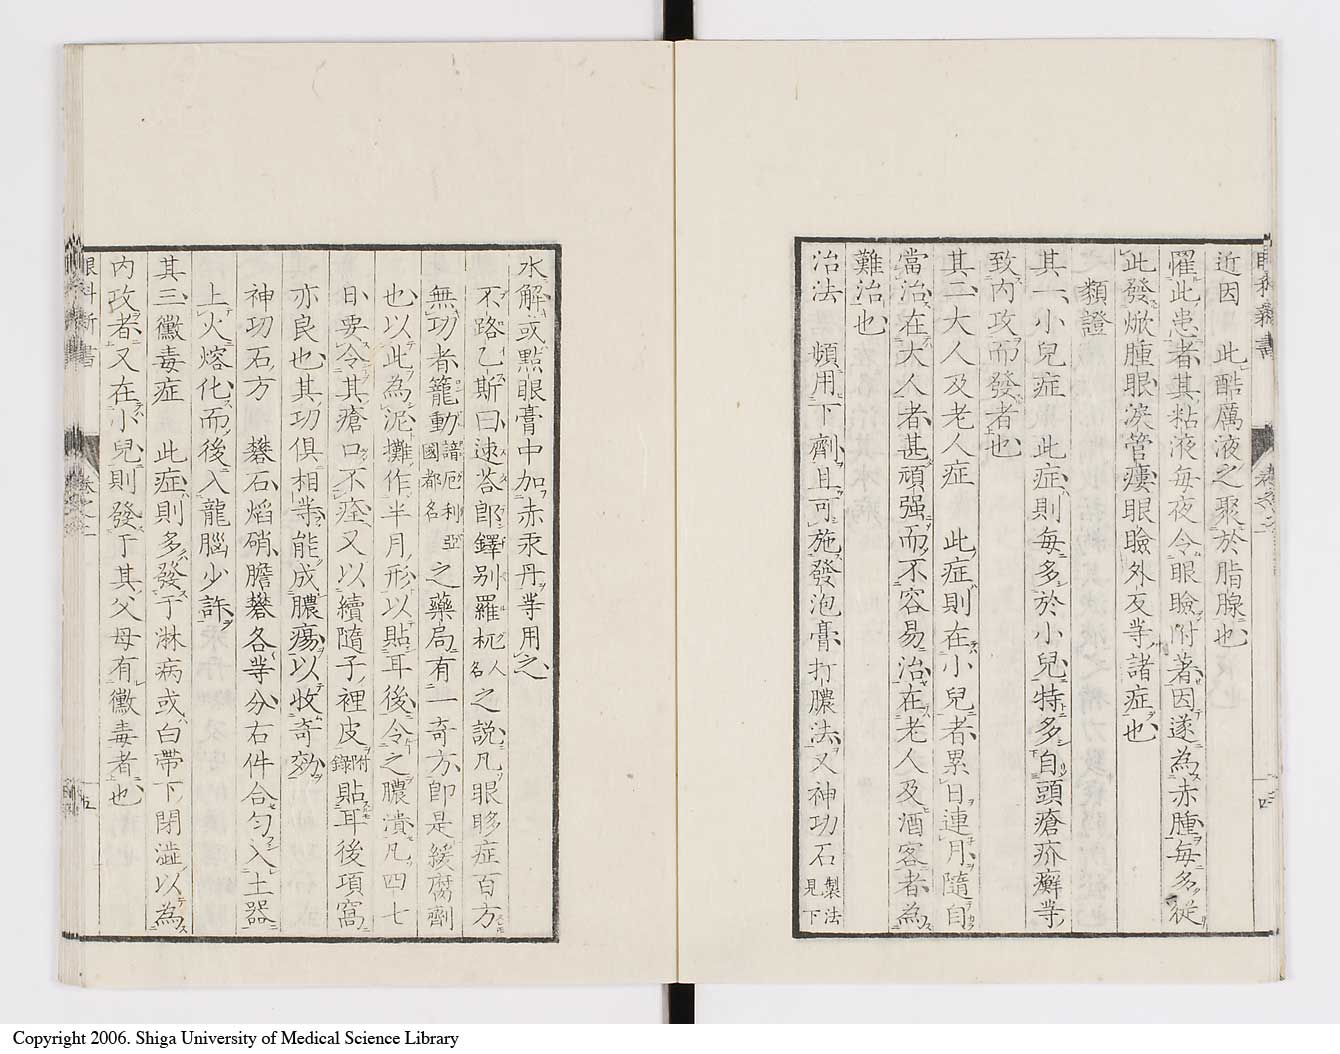 近因 此酷厲液之聚於脂腺也
罹此患者其粘液每夜令眼瞼附著因遂為赤腫每多從
此發焮腫眼淚管瘻眼瞼外反等諸症也
類證
其一小兒症 此症則每多於小兒特多自頭瘡疥癬等
致內攻而發者也
其二大人及老人症 此症則在小兒者累日連月隨自
當治在大人者甚頑强而不容易治在老人及酒客者為
難治也
治法 頻用下劑且可施發泡膏打膿法又神功石製法見下
水解或點眼膏中加赤汞丹等用之
不路乙斯曰速荅郎鐸別羅杋人名之說凡眼眵症百方
無功者籠動諳厄利亞國都名之藥局有一奇方卽是緩腐劑
也以此為泥攤作半月形以貼耳後令之膿潰凡四七
日要令其瘡口不痊又以續隨子裡皮附錄貼耳後項窩
亦良也其功俱相等能成膿瘍以收奇効
神功石方 礬石焰硝膽礬各等分右件合勻入土器
上火熔化而後入龍腦少許
其三黴毒症 此症則多發于淋病或白帶下閉澁以為
內攻者又在小兒則發于其父母有黴毒者也
眼科新書 卷之二
Copyright 2006. Shiga University of Medical Science Library